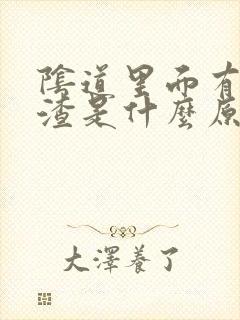 陰道里面有
渣是什麼原
大澤養了